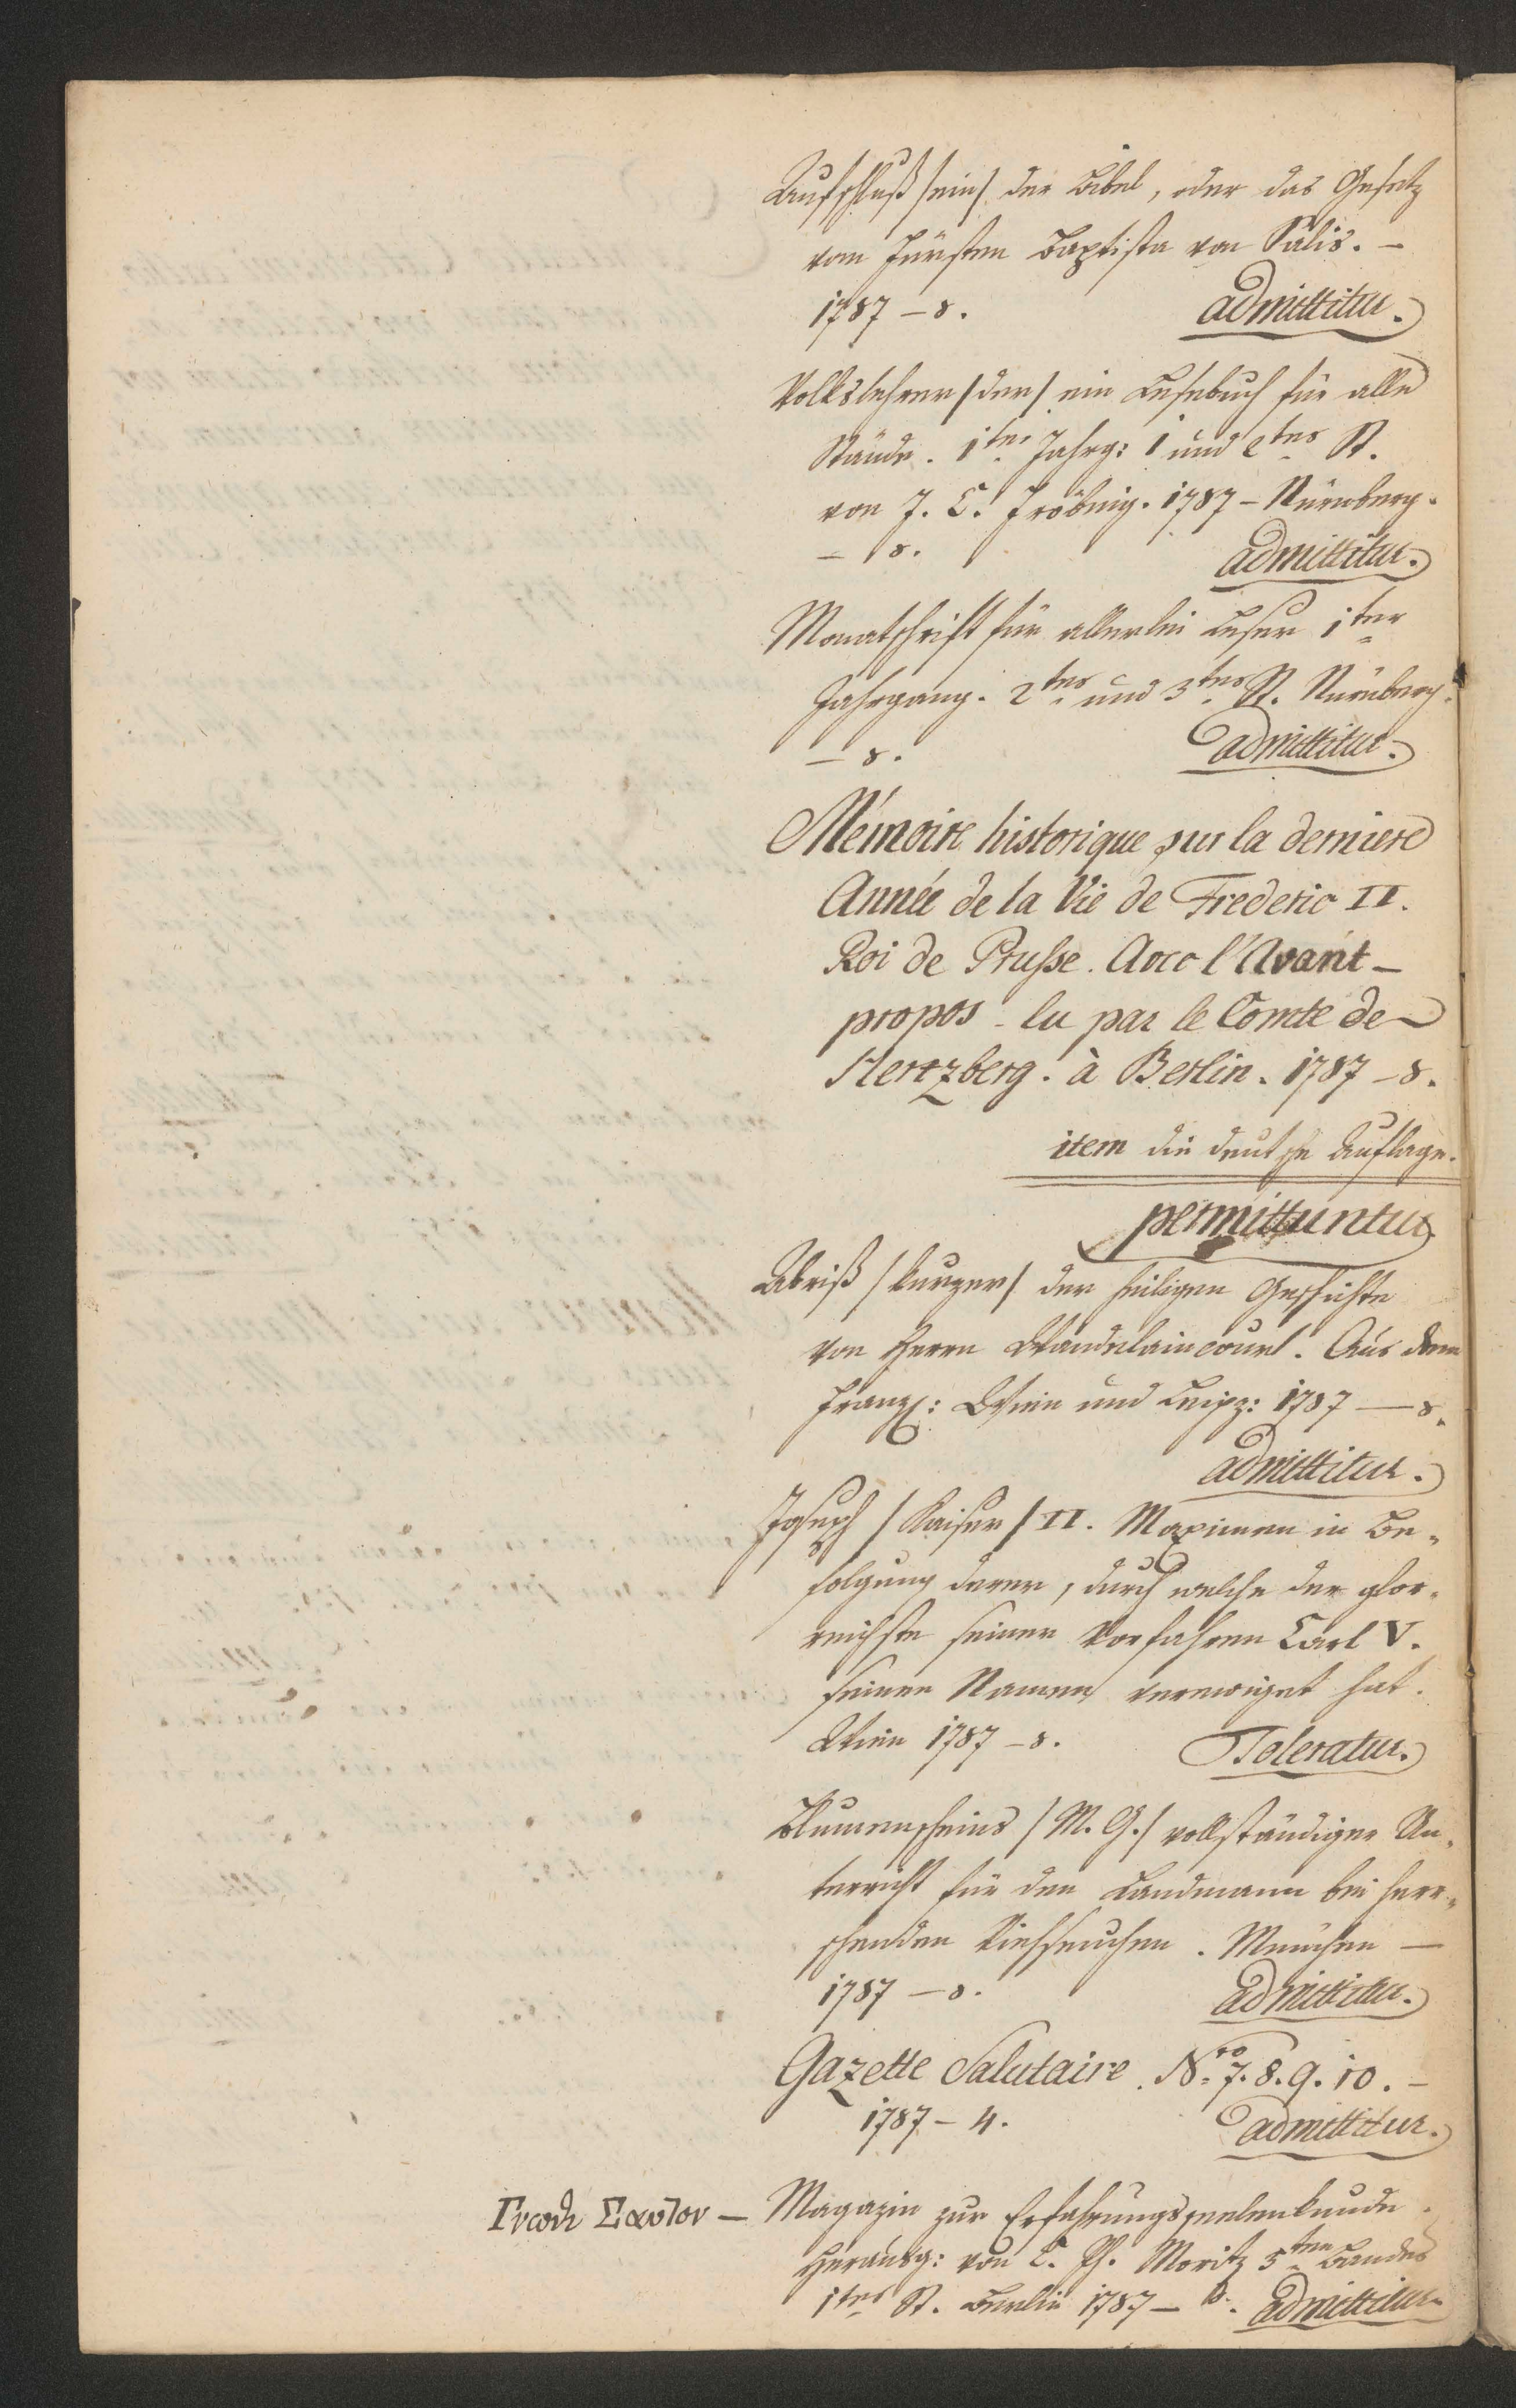 Aufschluß /ein/ der Bibel, oder das Gesetz
vom Fürsten Baptista von Salis. –
1787 – 8. admittitur.
Volkslehrer /der/ ein Lesebuch für alle
Stände. 1tes Jahrg: 1 und 2tes St.
von J. C. Fröbing. 1787 – Nürnberg.
– 8. admittitur.
Monatschrift für allerlei Leser 1ter
Jahrgang. 2tes und 3tes St. Nürnberg.
– 8. admittitur.
Mémoire historique sur la derniere
Année de la Vie de Frederic II.
Roi de Prusse. Avec l'Avant-
propos – lu par le Comte de
Hertzberg. à Berlin. 1787 – 8.
item die deutsche Auflage.
permittuntur
Abriß /kurzer/ der heiligen Geschichte
von Herrn Wandelaincourt. Aus dem
Franz: Wien und Leipz: 1787 – 8.
admittitur.
Joseph /Kaiser/ II. Maximen in Be-
folgung derer, durch welche der glor-
reichste seiner Vorfahren Carl V.
seinen Namen verewiget hat.
Wien 1787 – 8. Toleratur.
Blumenscheins /M. G./ vollständiger Un-
terricht für den Landmann bei herr-
schenden Viehseuchen. München –
1787 – 8. admittitur.
Gazette Salutaire. Nro 7. 8. 9. 10. –
1787 – 4. admittitur.
Γνωθι Σαυτον – Magazin zur Erfahrungsseelenkunde.
Herausg: von C. Ph. Moritz 5ten Bandes
1tes St. Berlin 1787 – 8. admittitur